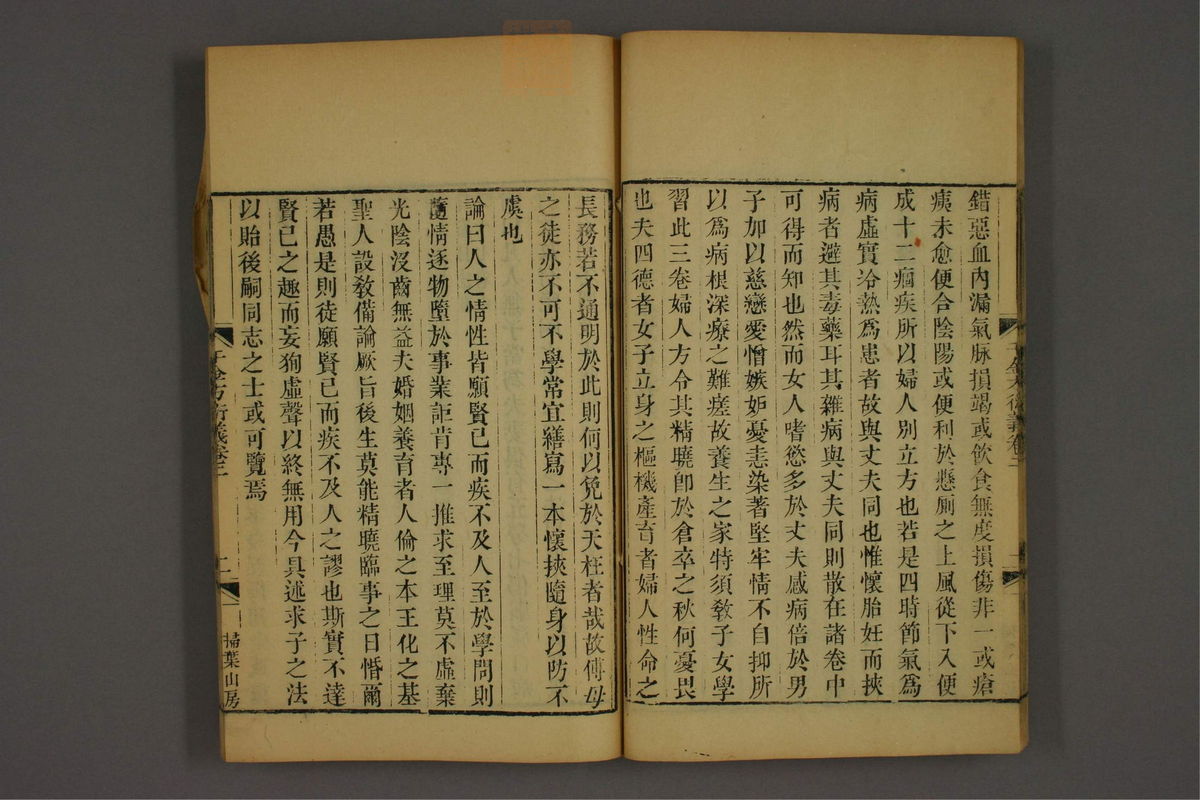 錯惡血內漏氣脉損竭或飲食無度損傷非一或瘡
痍未愈便合陰陽或便利於懸厠之上風從下入便
成十二痼疾所以婦人別立方也若是四時節氣爲
病虛實冷熱爲患者故與丈夫同也惟懷胎妊而挾
病者避其毒藥耳其雜病與丈夫同則散在諸卷中
可得而知也然而女人嗜慾多於丈夫感病倍於男
子加以慈戀愛憎嫉妒憂恚染著堅牢情不自抑所
以爲病根深療之難瘥故養生之家特須敎子女學
習此三卷婦人方令其精曉卽於倉卒之秋何憂畏
也夫四德者女子立身之樞機產育者婦人性命之
長務若不通明於此則何以免於天枉者哉故傅母
之徒亦不可不學常宜繕寫一本懷挾隨身以防不
虞也
論曰人之情性皆願賢己而疾不及人至於學問則
隨情逐物墮於事業詎肯專一推求至理莫不虛棄
光陰沒齒無益夫婚姻養育者人倫之本王化之基
聖人設敎備論厥旨後生莫能精曉臨事之日惛爾
若愚是則徒願賢己而疾不及人之謬也斯實不達
賢己之趣而妄狥虛聲以終無用今具述求子之法
以貽後嗣同志之士或可覽焉
千金方衍義卷二
二
掃葉山房